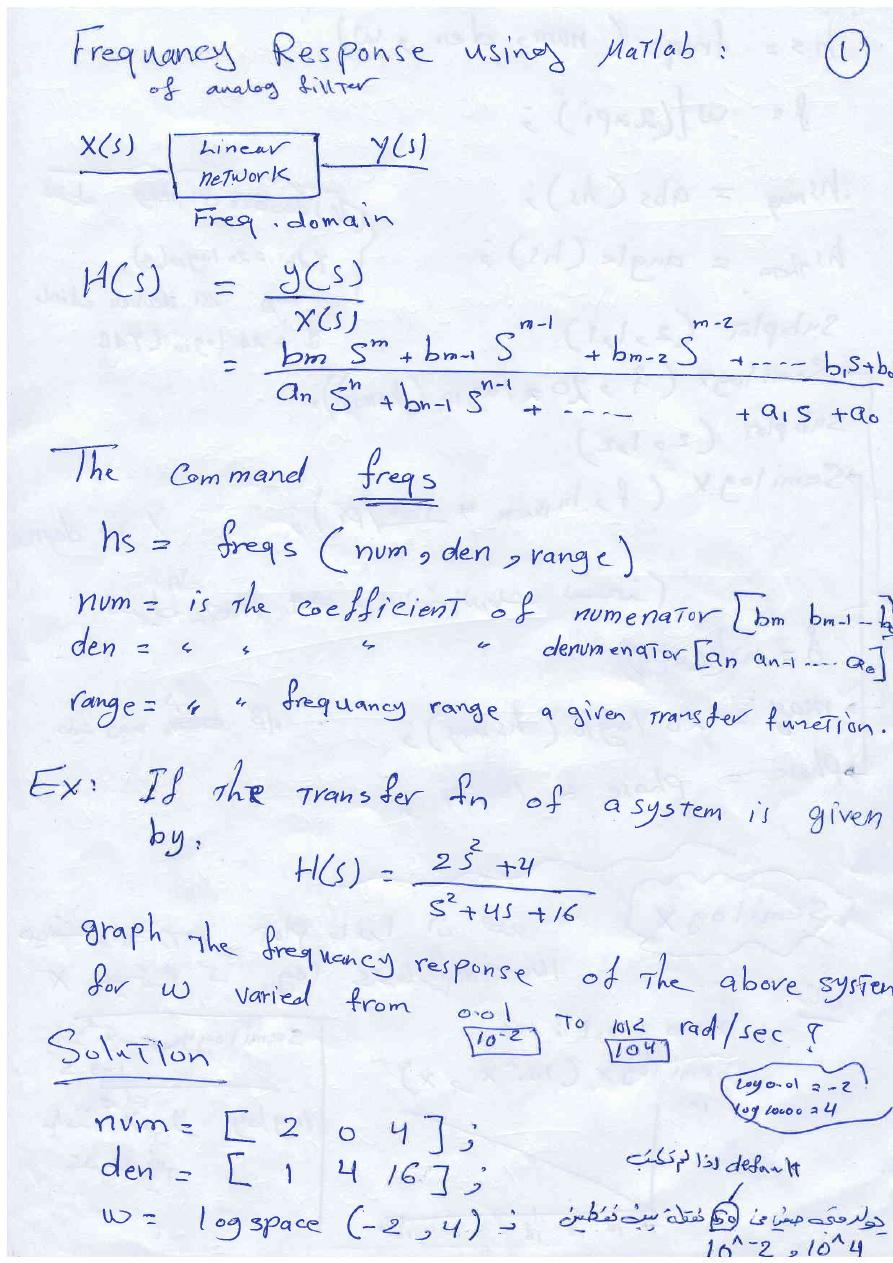 Frequancy Response using Matlab : 1
of analog fillter
X(s) Linear network y(s)
Freq. domain
H(s) = y(s) / X(s)
= bm S^m + bm-1 S^m-1 + bm-2 S^m-2 + ---- b1s+b0 / an S^n + bn-1 S^n-1 + ---- + a1 s + a0
The Command freqs
hs = freqs (num, den, range)
num = is the coefficient of numenator [bm bm-1 --
den = " " " " denumenator [an an-1 .... a0]
range = " " frequancy range a given transfer function.
Ex: If the transfer fn of a system is given
by.
H(s) = 2s^2 +4 / s^2 + 4s +16
graph the frequancy response of the above system
for w varied from 0.01 10^-2 To 10^4 rad/sec ?
Solution
log 0.01 = -2
log 10000 = 4
num = [ 2 0 4 ] ;
den = [ 1 4 16 ] ;
اذا لم تكتب default
w = logspace (-2, 4) ; نقطة بين نقطتين
10^-2, 10^4